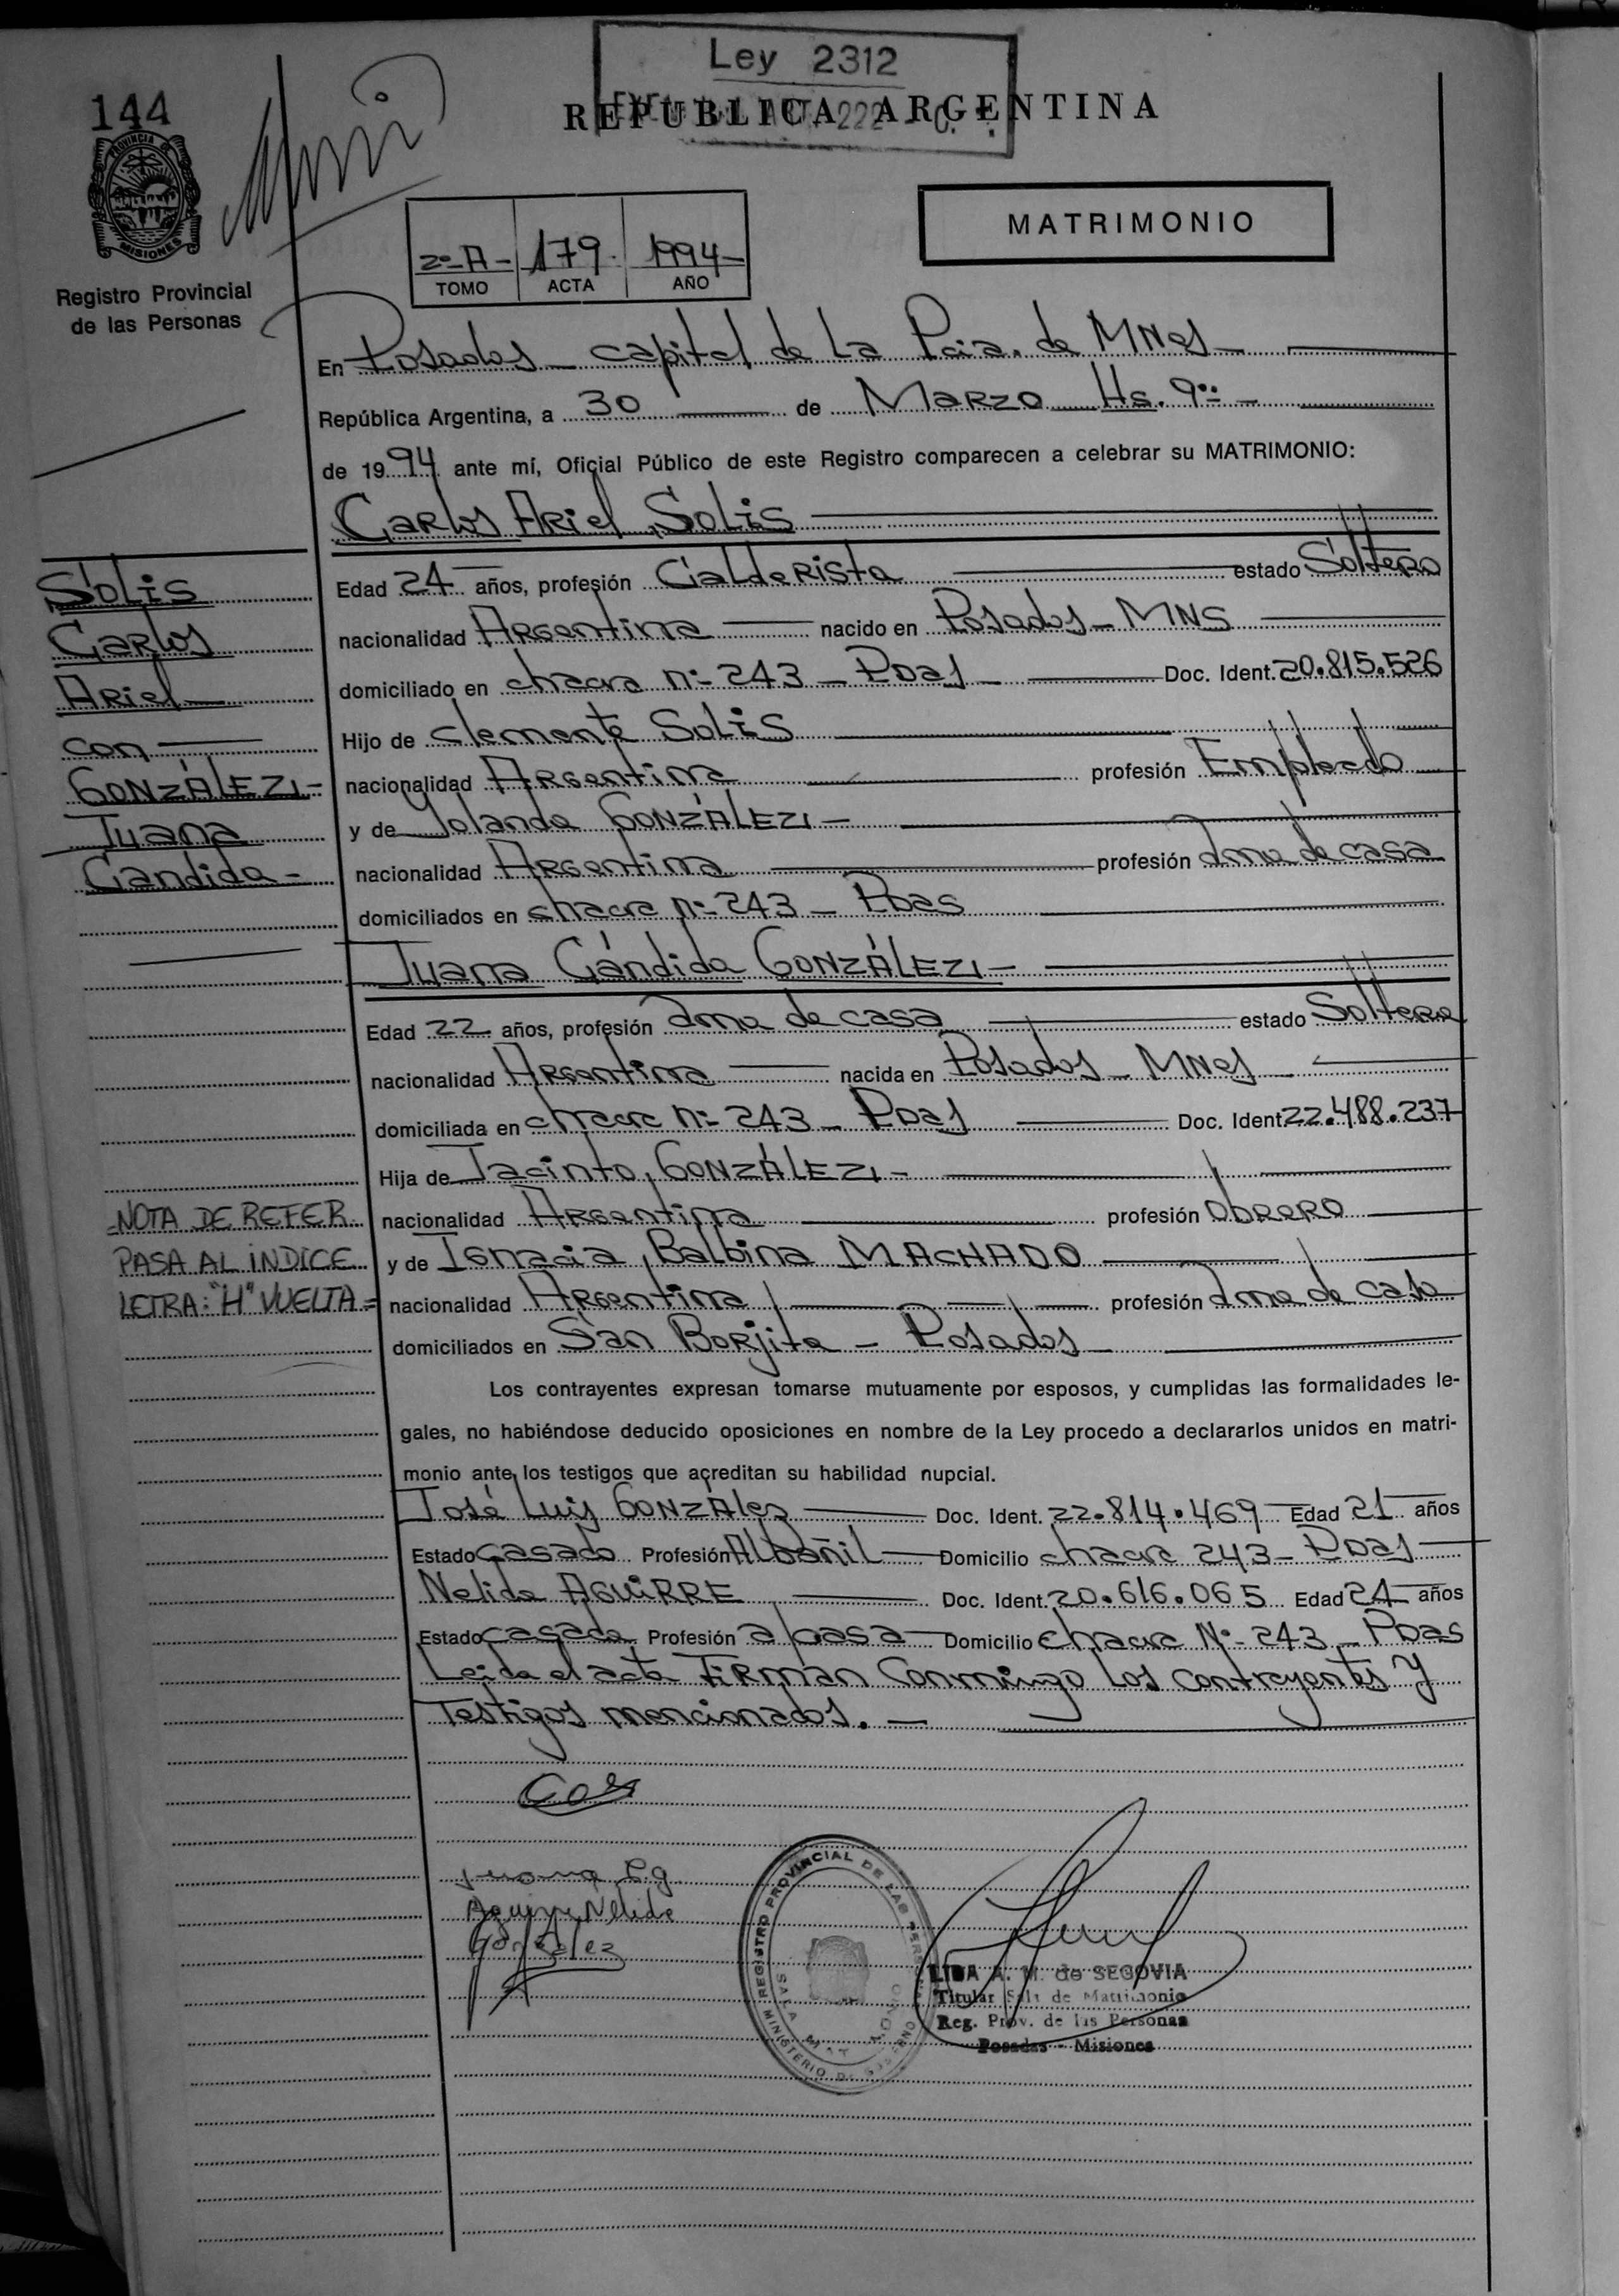 Ley 2312
144
REPUBLICA ARGENTINA
PROVINCIA DE
MISIONES
MATRIMONIO
2º-A- 179. 1994-
TOMO ACTA AÑO
Registro Provincial
de las Personas
En Posadas - capital de La Pcia. de MNes-
República Argentina, a 30 de Marzo Hs. 9:-
de 1994 ante mí, Oficial Público de este Registro comparecen a celebrar su MATRIMONIO:
Carlos Ariel, SoLis
SoLis
Carlos
Ariel
con
GONZÁLEZ
Juana
Cándida-
Edad 24 años, profesión estado Soltero
nacionalidad Argentina nacido en Posadas - MNS
domiciliado en chacra nº- 243 - Pdas - Doc. Ident. 20.815.526
Hijo de Clemente SoLis
nacionalidad Argentina profesión Empleado
y de Yolanda GONZÁLEZ-
nacionalidad Argentina profesión ama de casa
domiciliados en chacra nº- 243 - Pdas
Juana Cándida GONZÁLEZ-
Edad 22 años, profesión ama de casa estado Soltera
nacionalidad Argentina nacida en Posadas - MNes
domiciliada en chacra nº- 243 - Pdas Doc. Ident. 22.488.237
Hija de Jacinto, GONZÁLEZ-
nacionalidad Argentina profesión Obrero
y de Ignacia, Balbina MACHADO
nacionalidad Argentina profesión ama de casa
domiciliados en San Borjita - Posadas
NOTA DE REFER.
PASA AL INDICE
LETRA: "H" VUELTA=
Los contrayentes expresan tomarse mutuamente por esposos, y cumplidas las formalidades le-
gales, no habiéndose deducido oposiciones en nombre de la Ley procedo a declararlos unidos en matri-
monio ante los testigos que acreditan su habilidad nupcial.
José Luis GONZÁlez Doc. Ident. 22.814.469 Edad 21 años
Estado casado Profesión Albañil Domicilio chacra 243 - Pdas
Nelida AGUIRRE Doc. Ident. 20.616.065 Edad 24 años
Estado casada Profesión a/casa Domicilio chacra Nº- 243 - Pdas
Leida el acta FIRMAN Conmingo los contrayentes y
Testigos mencionados. -
Juana C.g.
Aguirre Nelida
González
REGISTRO PROVINCIAL DE LAS PERSONAS
MINISTERIO DE GOBIERNO
LIDA A. M. de SEGOVIA
Titular Sala de Matrimonio
Reg. Prov. de las Personas
Posadas - Misiones